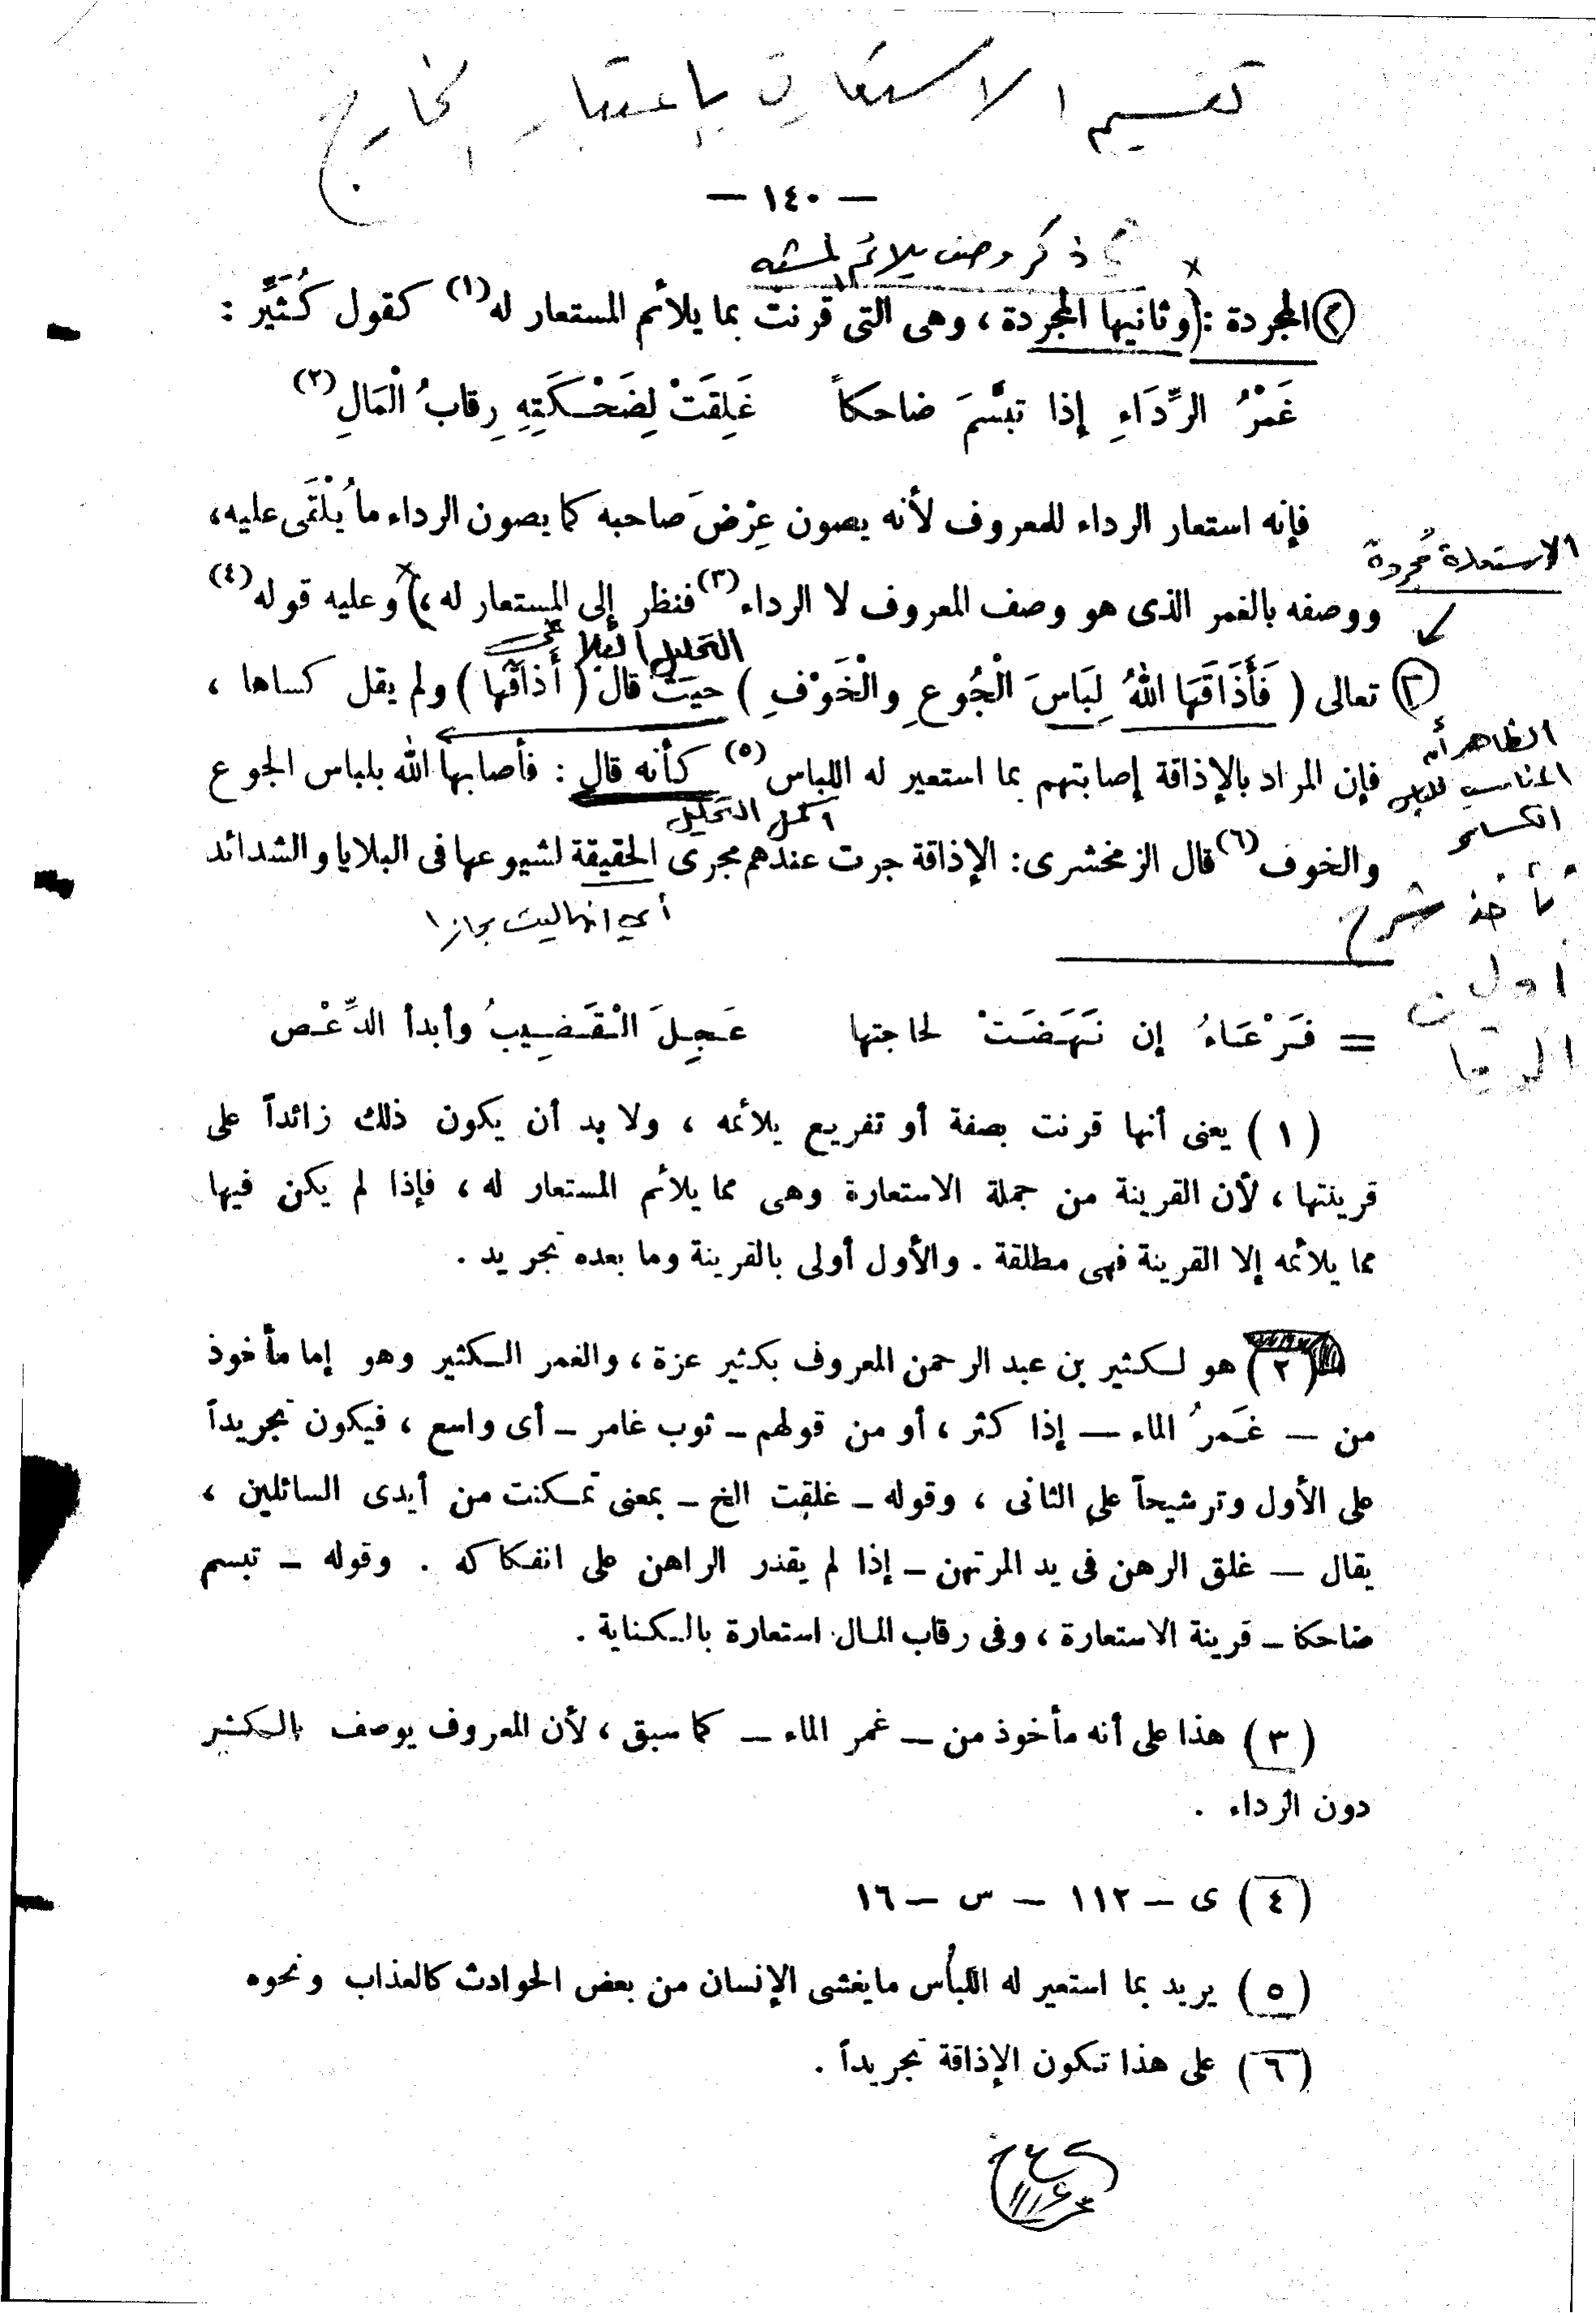 تقسيم الاستعارة بإعتبار الخارج
— ١٤٠ —
ذكر وصف يلائم المشبه
٢ المجردة : (وثانيها المجردة ، وهى التى قرنت بما يلائم المستعار له (١) كقول كُثَيِّر :
غَمْرُ الرِّدَاءِ إذا تبسَّمَ ضاحكاً غَلِقَتْ لِضَحْكَتِهِ رِقابُ الْمَالِ (٢)
فإنه استعار الرداء للمعروف لأنه يصون عِرْضَ صاحبه كما يصون الرداء ما يُلْقَى عليه،
الاستعارة مجردة
ووصفه بالغمر الذى هو وصف المعروف لا الرداء (٣) فنظر إلى المستعار له ،) وعليه قوله (٤)
التحليل البلاغي
تعالى ( فَأَذَاقَهَا اللهُ لِبَاسَ الْجُوعِ والْخَوْفِ ) حيث قال ( أذاقها ) ولم يقل كساها ،
الظاهر أن
المناسب للباس
الكساء
فإن المراد بالإذاقة إصابتهم بما استعير له اللباس (٥) كأنه قال : فأصابها الله بلباس الجوع
أكمل التحليل
والخوف (٦) قال الزمخشرى : الإذاقة جرت عندهم مجرى الحقيقة لشيوعها فى البلايا والشدائد
أي انها ليست مجازا
نأخذ شرح
= فَرْعَاءُ إن نَهَضَتْ لحاجتها عَجِلَ الْقَضِيبُ وأبدأ الدِّعْص
(١) يعنى أنها قرنت بصفة أو تفريع يلائمه ، ولا بد أن يكون ذلك زائداً على
قرينتها ، لأن القرينة من جملة الاستعارة وهى مما يلائم المستعار له ، فإذا لم يكن فيها
مما يلائمه إلا القرينة فهى مطلقة . والأول أولى بالقرينة وما بعده تجريد .
(٢) هو لكثير بن عبد الرحمن المعروف بكثير عزة ، والغمر الكثير وهو إما مأخوذ
من — غَمرُ الماء — إذا كثر ، أو من قولهم — ثوب غامر — أى واسع ، فيكون تجريداً
على الأول وترشيحاً على الثانى ، وقوله — غلقت الخ — بمعنى تمكنت من أيدى السائلين ،
يقال — غلق الرهن فى يد المرتهن — إذا لم يقدر الراهن على انفكاكه . وقوله — تبسم
ضاحكا — قرينة الاستعارة ، وفى رقاب المال استعارة بالكناية .
(٣) هذا على أنه مأخوذ من — غمر الماء — كما سبق ، لأن المعروف يوصف بالكثير
دون الرداء .
(٤) ى — ١١٢ — س — ١٦
(٥) يريد بما استعير له اللباس ما يغشى الإنسان من بعض الحوادث كالعذاب ونحوه
(٦) على هذا تكون الإذاقة تجريداً .